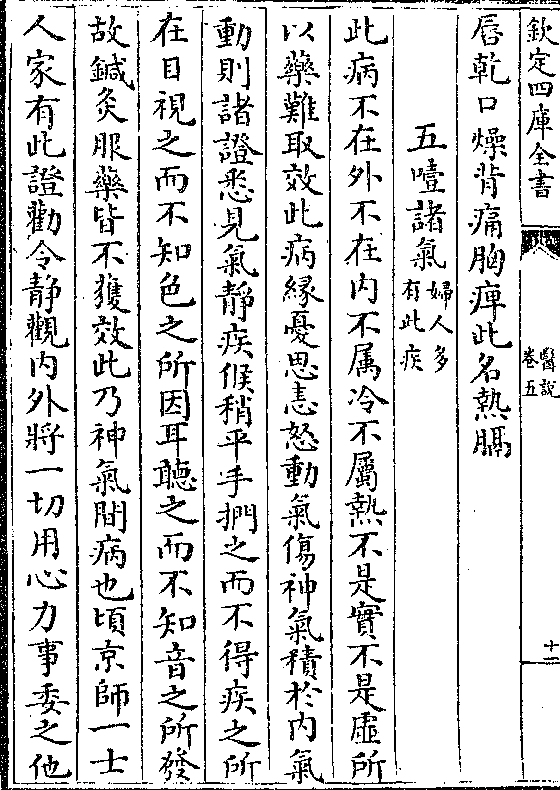 欽定四庫全書
醫説
卷五
十二
唇乾口燥背痛胸痺此名熱膈
五噎諸氣婦人多有此疾
此病不在外不在内不属冷不屬熱不是實不是虛所
以藥難取效此病縁憂思恚怒動氣傷神氣積於内氣
動則諸證悉見氣静疾候稍平手捫之而不得疾之所
在目視之而不知色之所因耳聽之而不知音之所發
故鍼灸服藥皆不獲效此乃神氣間病也頃京師一士
人家有此證勸令静觀内外將一切用心力事委之他